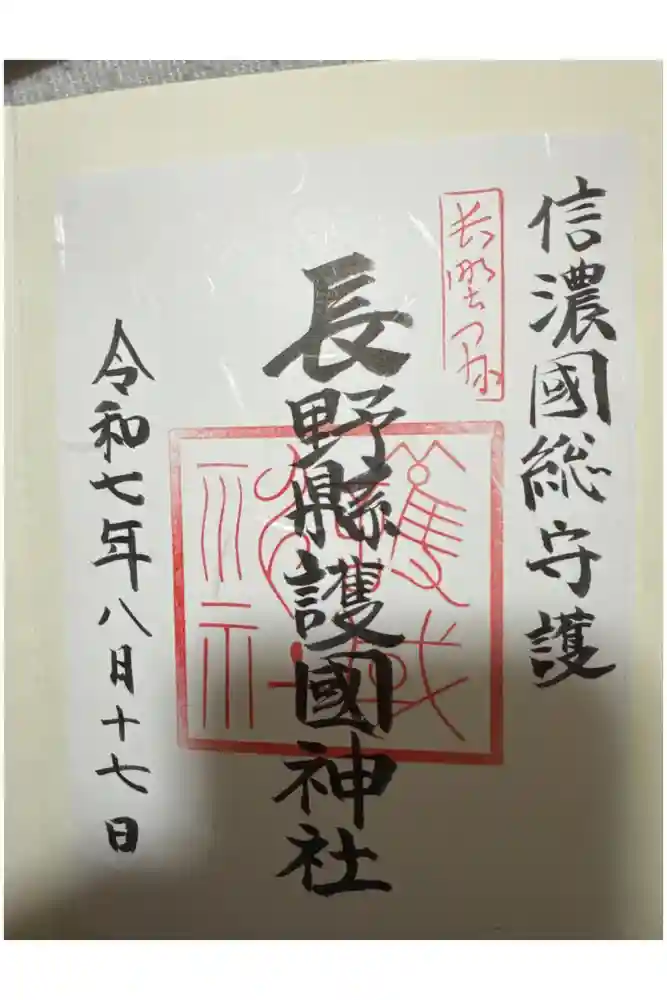 信濃國総守護
長野縣護國神社
令和七年八月十七日